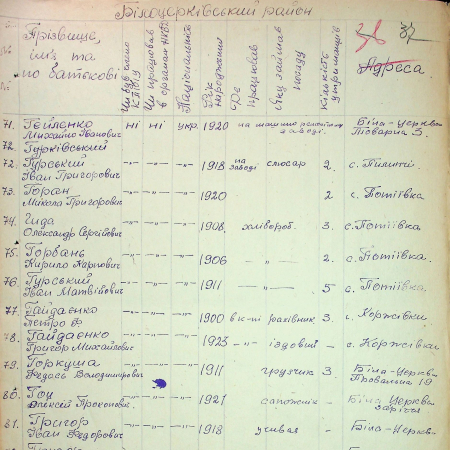 Білоцерківський район
38 32
Прізвище, ім'я та по батькові
Чи був член КП(б)У
Чи працював в органах НКВС
Національність
Рік народження
Де працював
Яку займав посаду
Кількість утриманців
Адреса.
71. Гейленко Михайло Іванович ні ні укр. 1920 на машино заводі. Біла-Церква Товарна 3.
72. Гурківський
72. Гурський Іван Григорович -"- -"- -"- 1918 на заводі слюсар 2. с. Пилипча
73. Горан Микола Григорович -"- -"- -"- 1920 2 с. Потіївка
74. Гида Олександр Сергійович -"- -"- -"- 1908. хлібороб. 3. с. Потіївка.
75. Горбань Кирило Карпович -"- -"- -"- 1906 -"- 2 с. Потіївка.
76. Гурський Іван Матвійович -"- -"- -"- 1911 -"- 5 с. Потіївка
77. Гайдаєнко Петро Ф -"- -"- -"- 1900 в к-пі рахівник 3 с. Коржівка
78. Гайдаєнко Григор Михайлович -"- -"- -"- 1925 -"- їздовий - с. Коржівка
79. Горкуша Федось Володимирович -"- -"- -"- 1911 грузчик 3. Біла-Церква Товарна 19
80. Гоц Олексій Прокопович. -"- -"- -"- 1921 сапожник - Біла Церква Заріччя
81. Григор Іван Федорович -"- -"- -"- 1918 - Біла-Церкв-